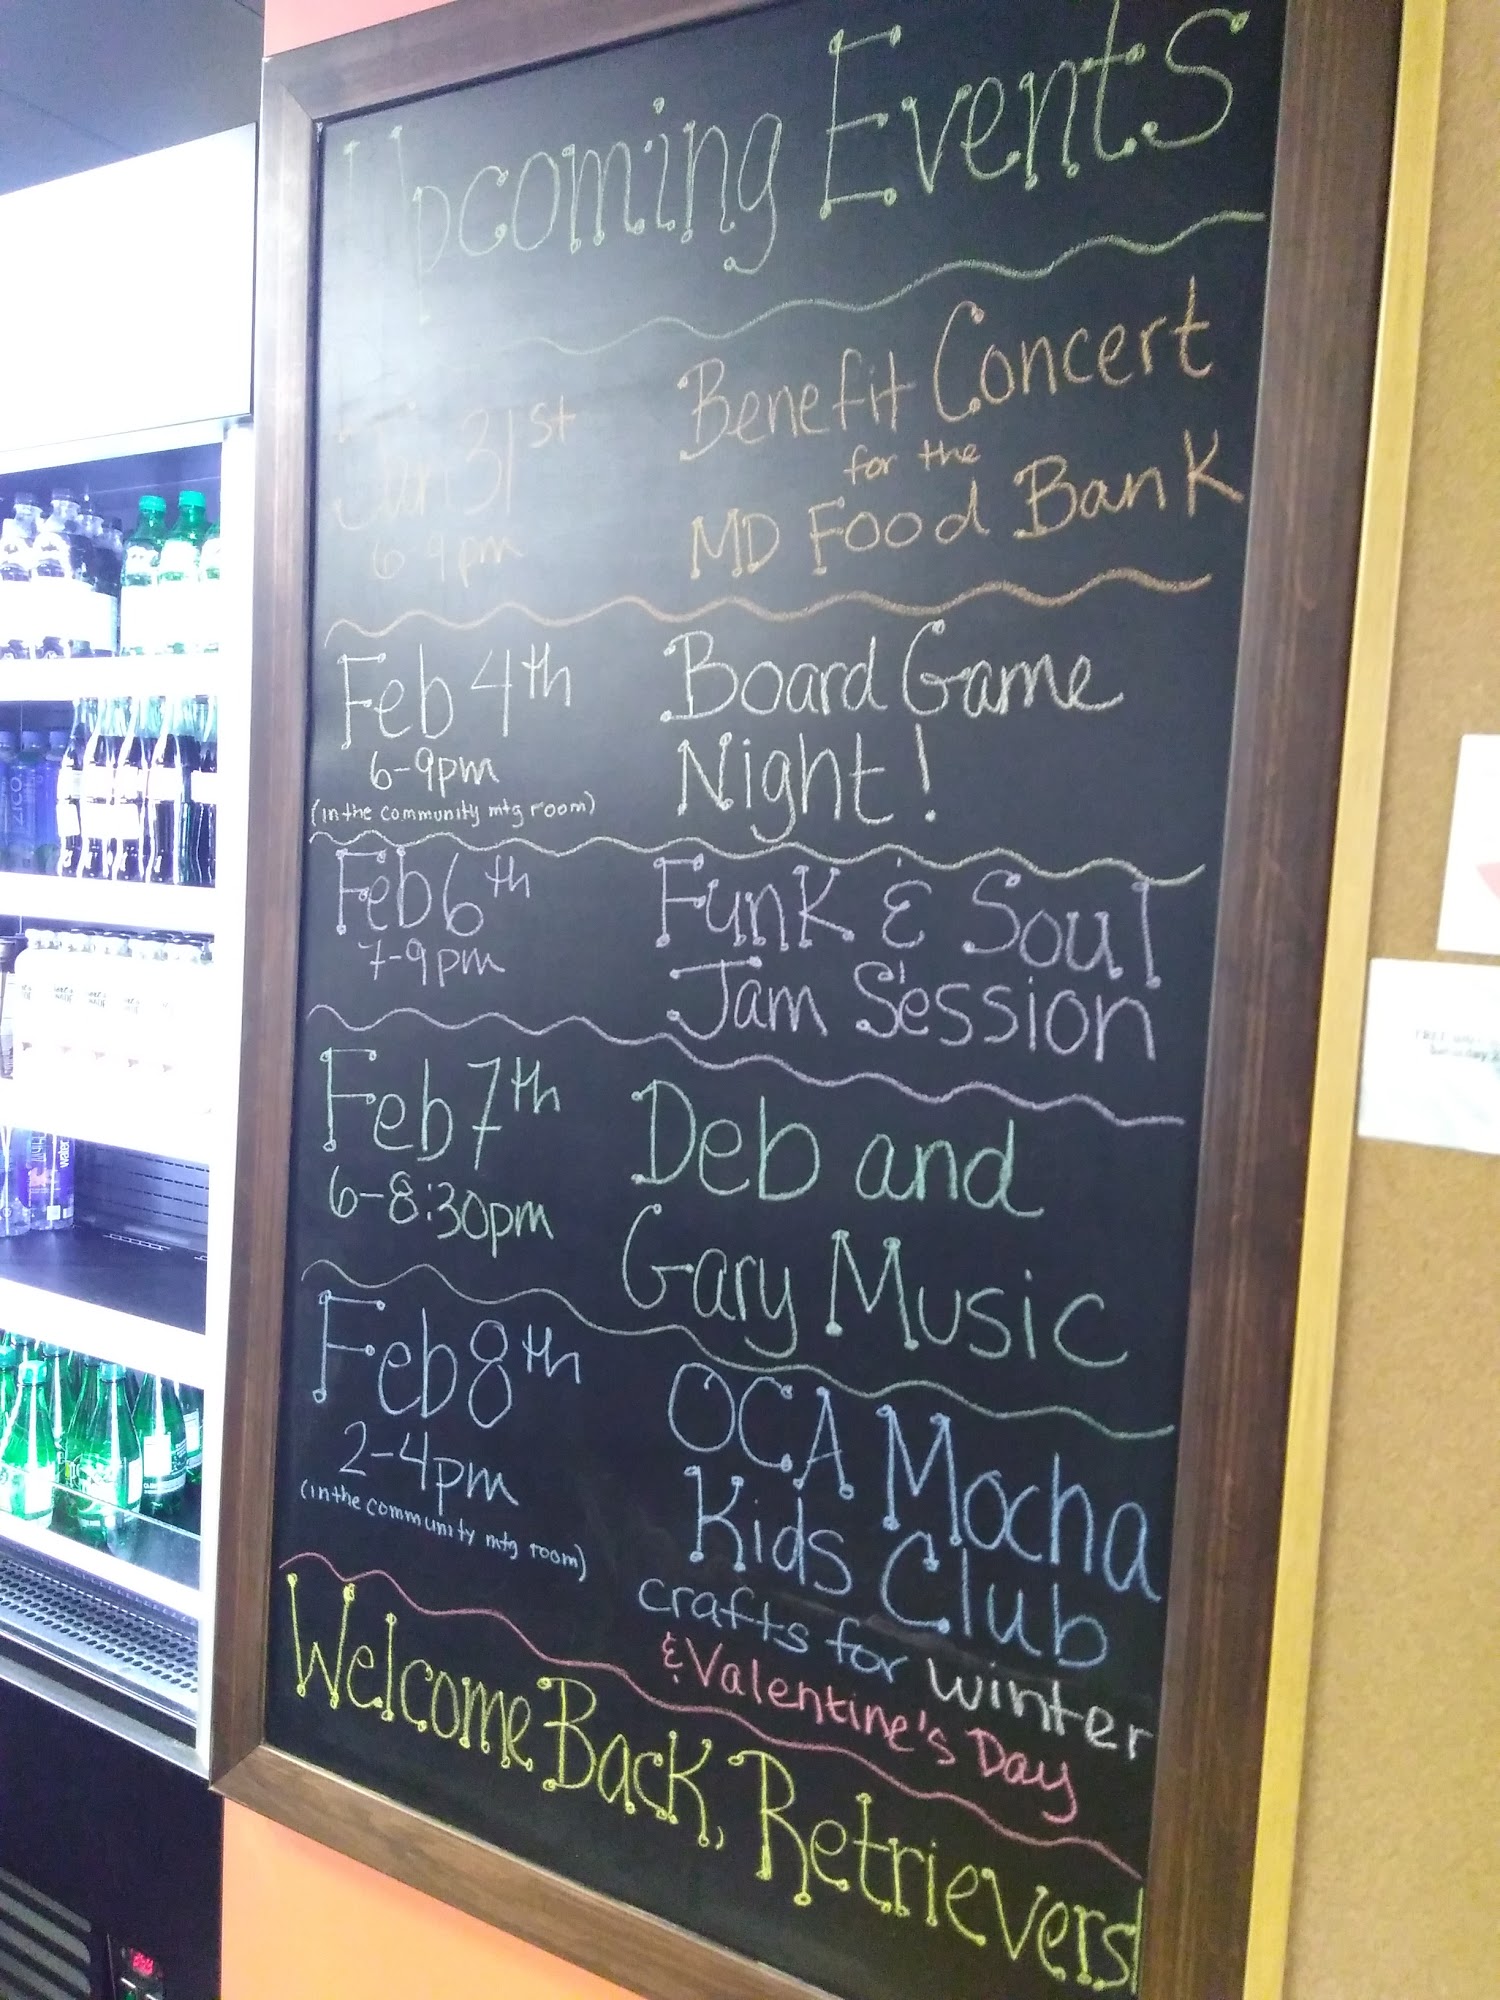 Upcoming Events
Jan 31st
6-9pm
Benefit Concert
for the
MD Food Bank
Feb 4th
6-9pm
(in the community mtg room)
Board Game
Night!
Feb 6th
7-9pm
Funk & Soul
Jam Session
Feb 7th
6-8:30pm
Deb and
Gary Music
Feb 8th
2-4pm
(in the community mtg room)
OCA Mocha
Kids Club
crafts for winter
& Valentine's Day
Welcome Back, Retrievers!
ZICO
water